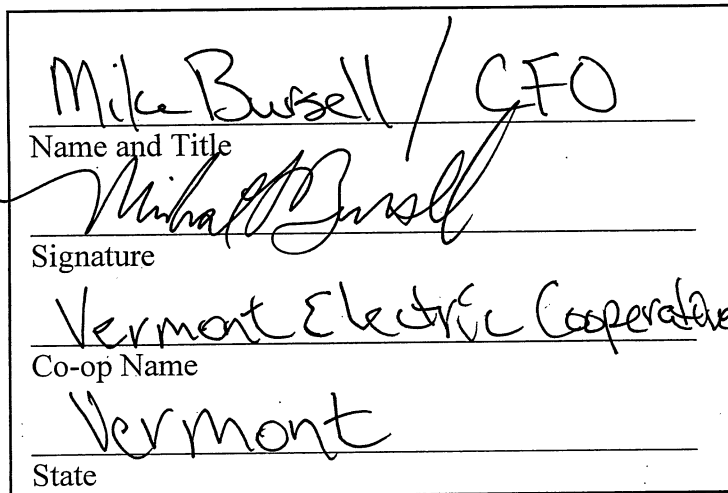 Mike Bursell / CFO
Name and Title
Michael Bursell
Signature
Vermont Electric Cooperative
Co-op Name
Vermont
State